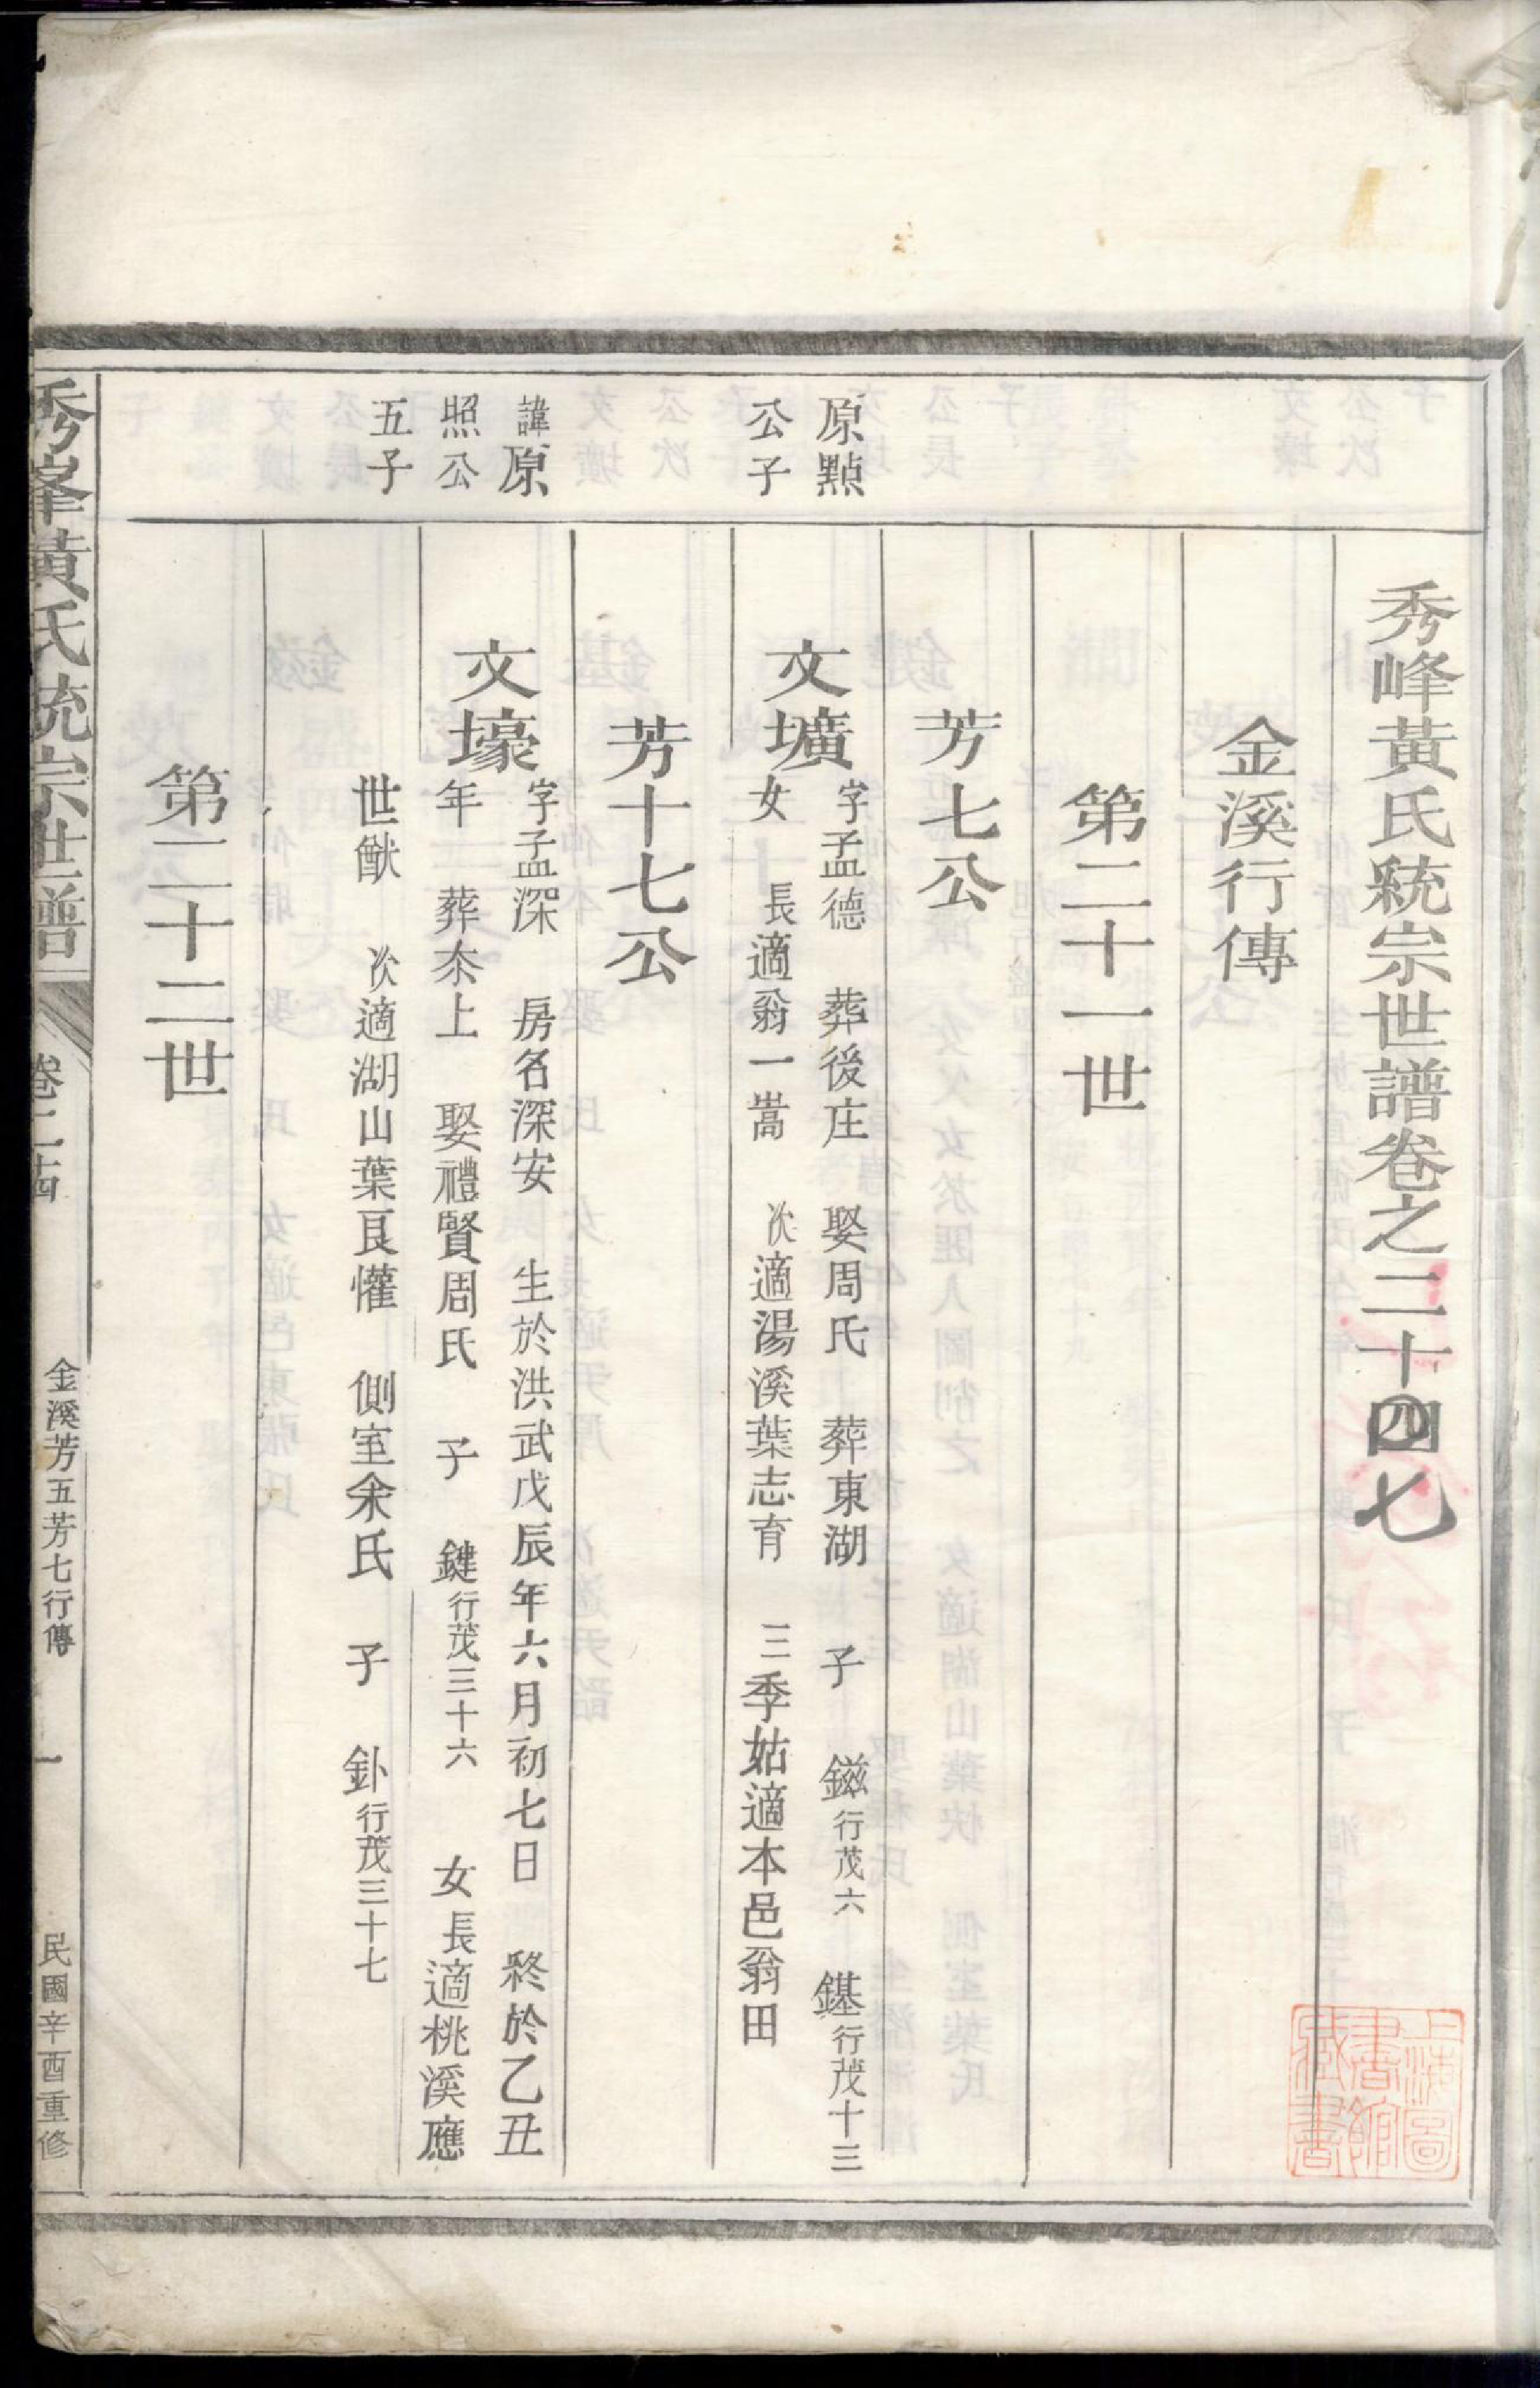 秀峰黃氏統宗世譜卷之二十四七
金溪行傳
第二十一世
芳七公
原點
公子
文壙
字孟德 葬後庄 娶周氏 葬東湖 子 鎡行茂六 鍖行茂十三
女 長適翁一嵩 次適湯溪葉志育 三季姑適本邑翁田
芳十七公
諱原
照公
五子
文壕
字孟深 房名深安 生於洪武戊辰年六月初七日 終於乙丑
年 葬夵上 娶禮賢周氏 子 鍵行茂三十六 女長適桃溪應
世猷 次適湖山葉良懽 側室余氏 子 釙行茂三十七
第二十二世
秀峯黃氏統宗世譜
卷二十四
金溪芳五芳七行傳
一
民國辛酉重修
上海圖書館藏書